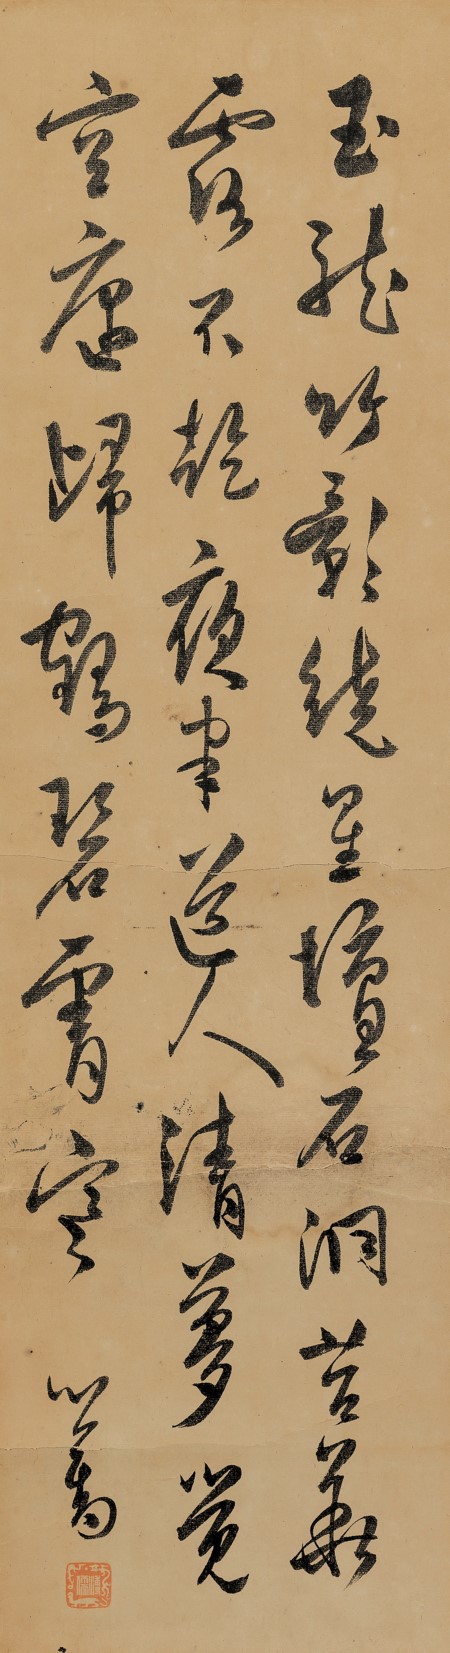 玉龍竹影繞星壇石洞苔華
露不乾夜半道人清夢覺
空庭歸鶴碧霄寒 心畬